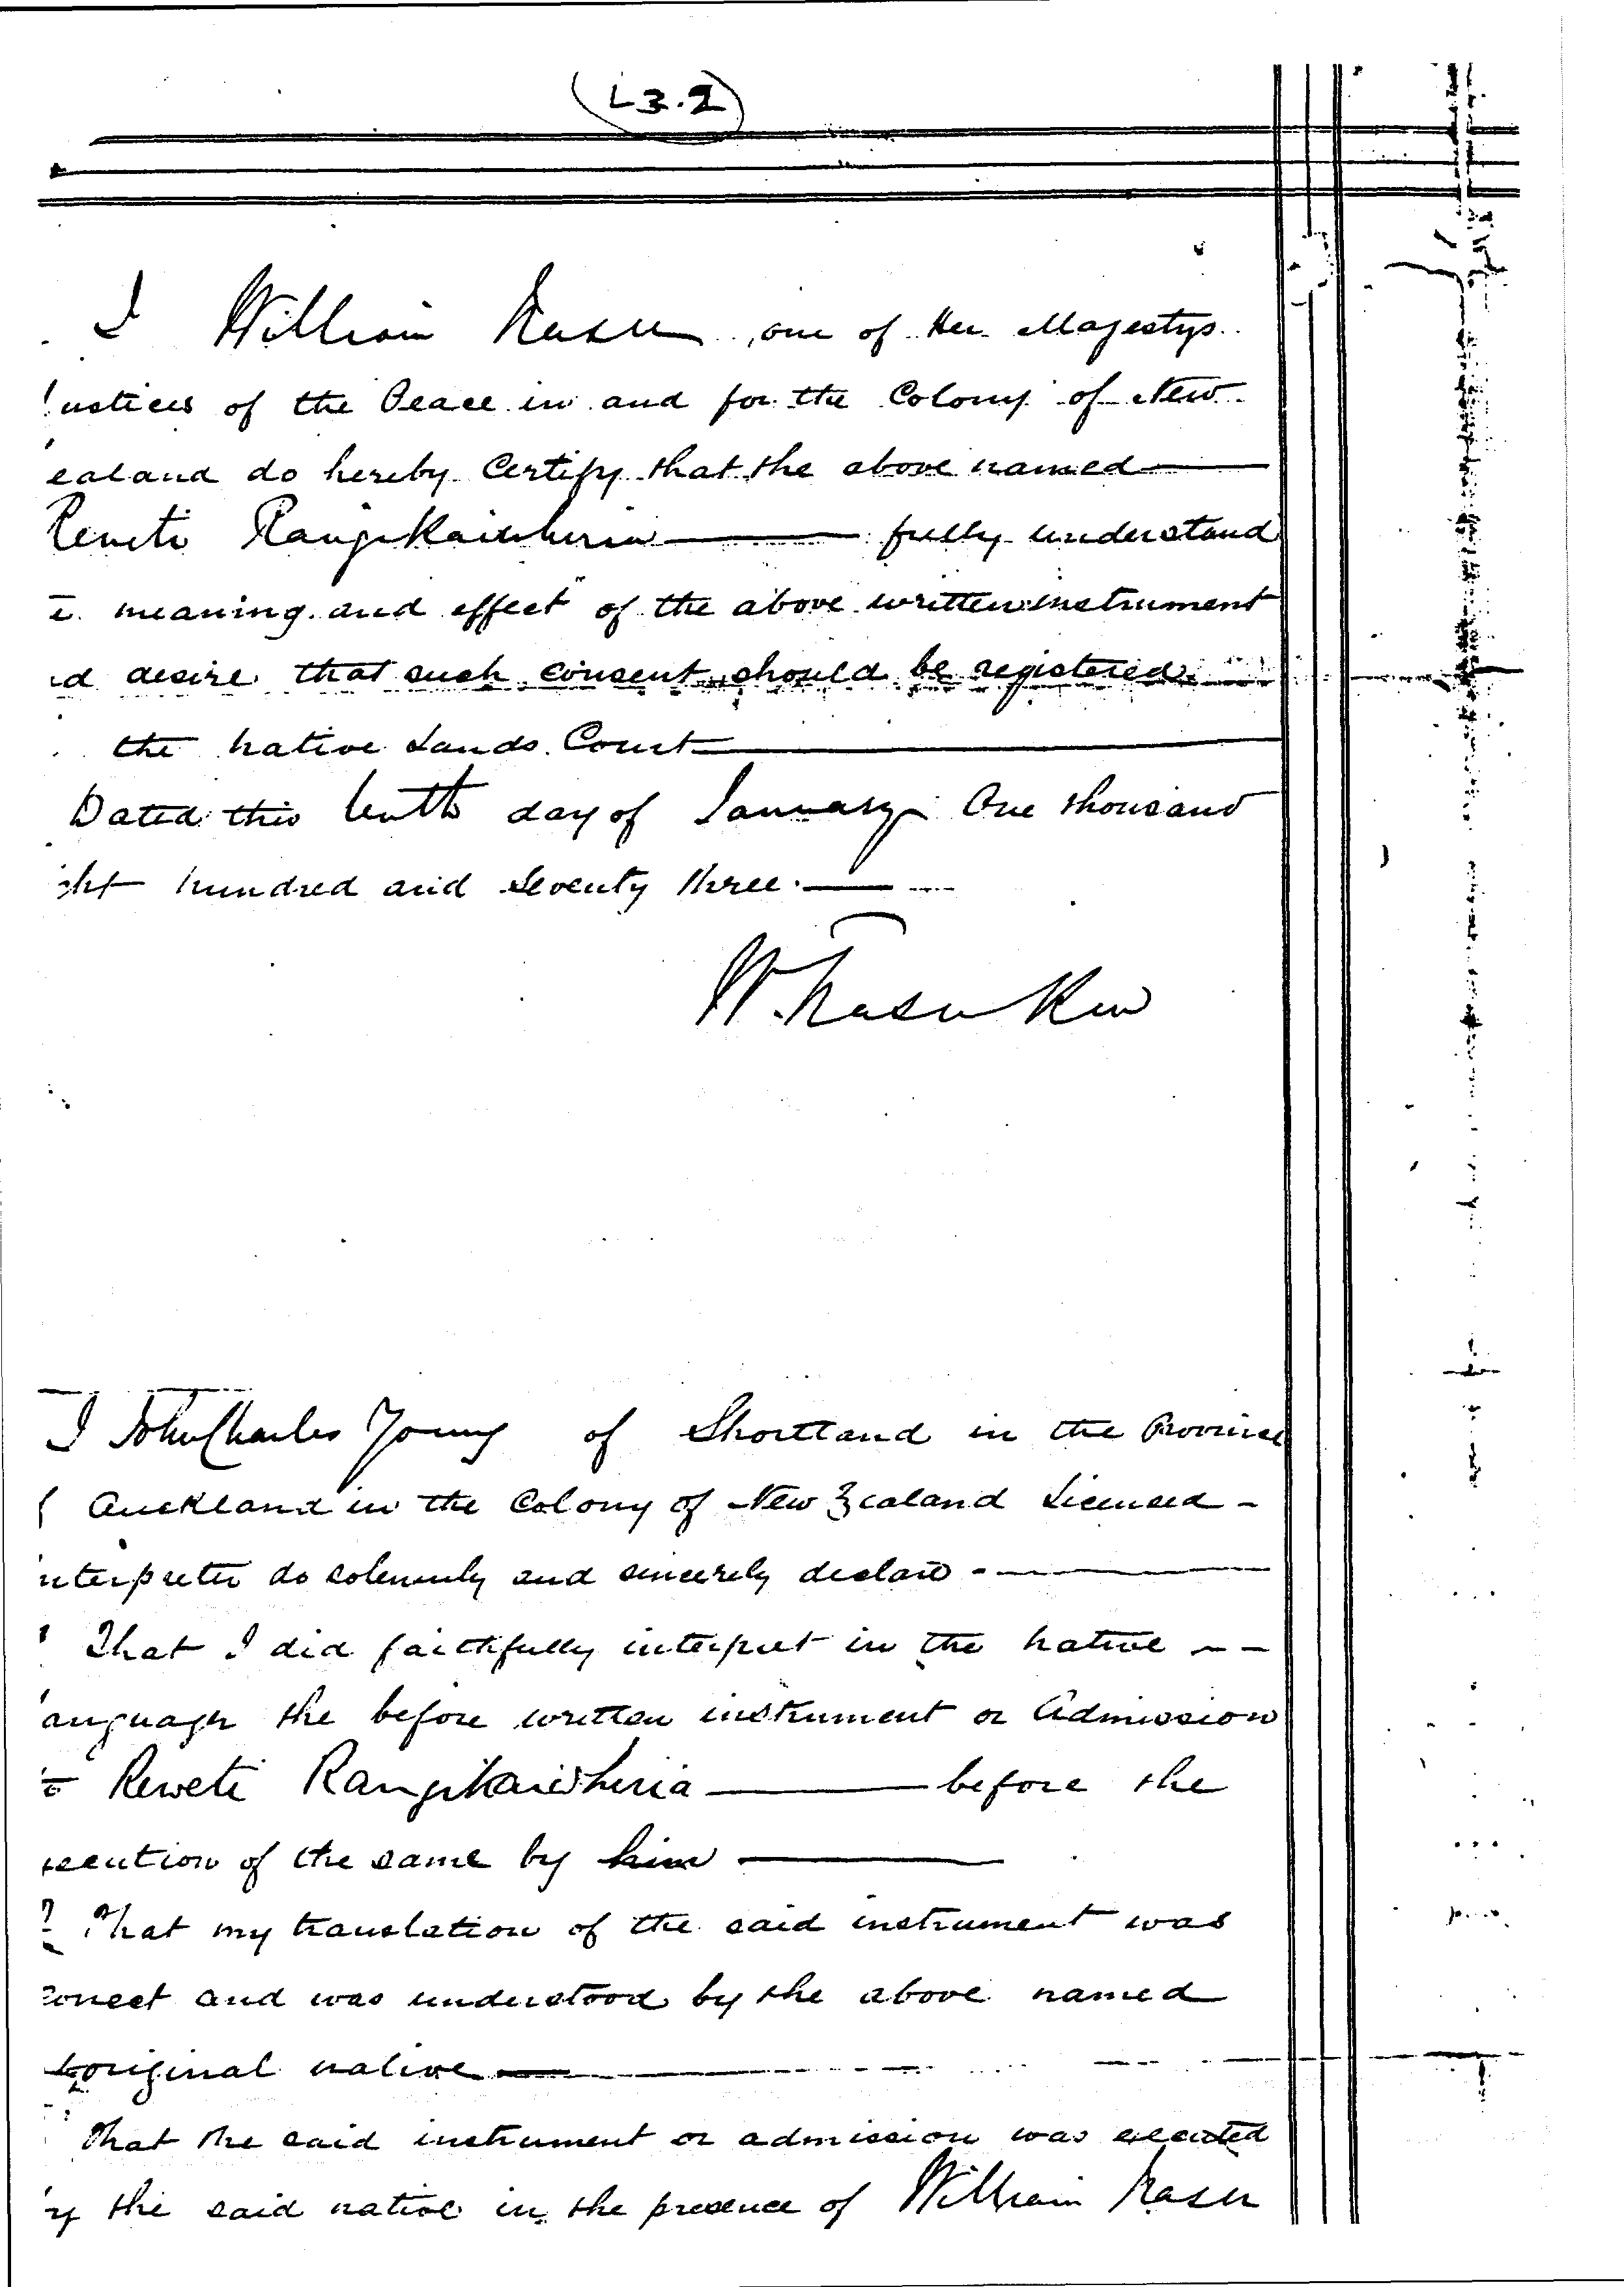 (L3.2)
I William Fraser, one of Her Majestys
ustices of the Peace in and for the Colony of New
ealand do hereby Certify that the above named
Reweti Rangikaiwhiria fully understand
e meaning and effect of the above written instrument
d desire that such consent should be registered
the native Lands Court
Dated this tenth day of January One thousand
ght hundred and Seventy three
W. Fraser
I John Charles Young of Shortland in the Province
f Auckland in the Colony of New Zealand Licensed -
nterpreter do solemnly and sincerely declare -
That I did faithfully interpret in the native - -
anguage the before written instrument or Admission
to Reweti Rangikaiwhiria before the
xecution of the same by him
2 That my translation of the said instrument was
correct and was understood by the above named
boriginal native
That the said instrument or admission was executed
y the said native in the presence of William Fraser